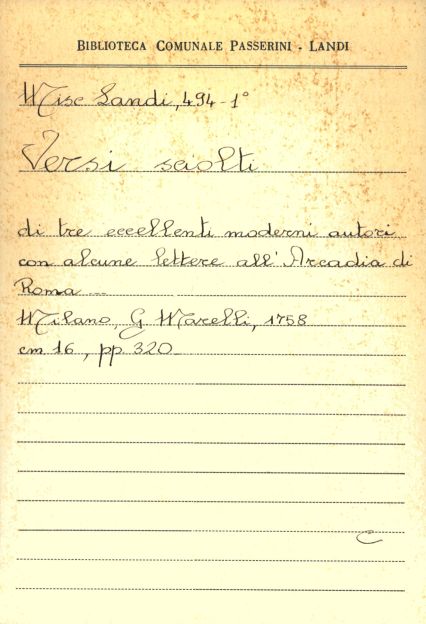 BIBLIOTECA COMUNALE PASSERINI - LANDI
Misc Landi, 494 - 1°
Versi sciolti
di tre eccellenti moderni autori
con alcune lettere all'Arcadia di
Roma ...
Milano, G. Marelli, 1758
cm 16, pp. 320
C